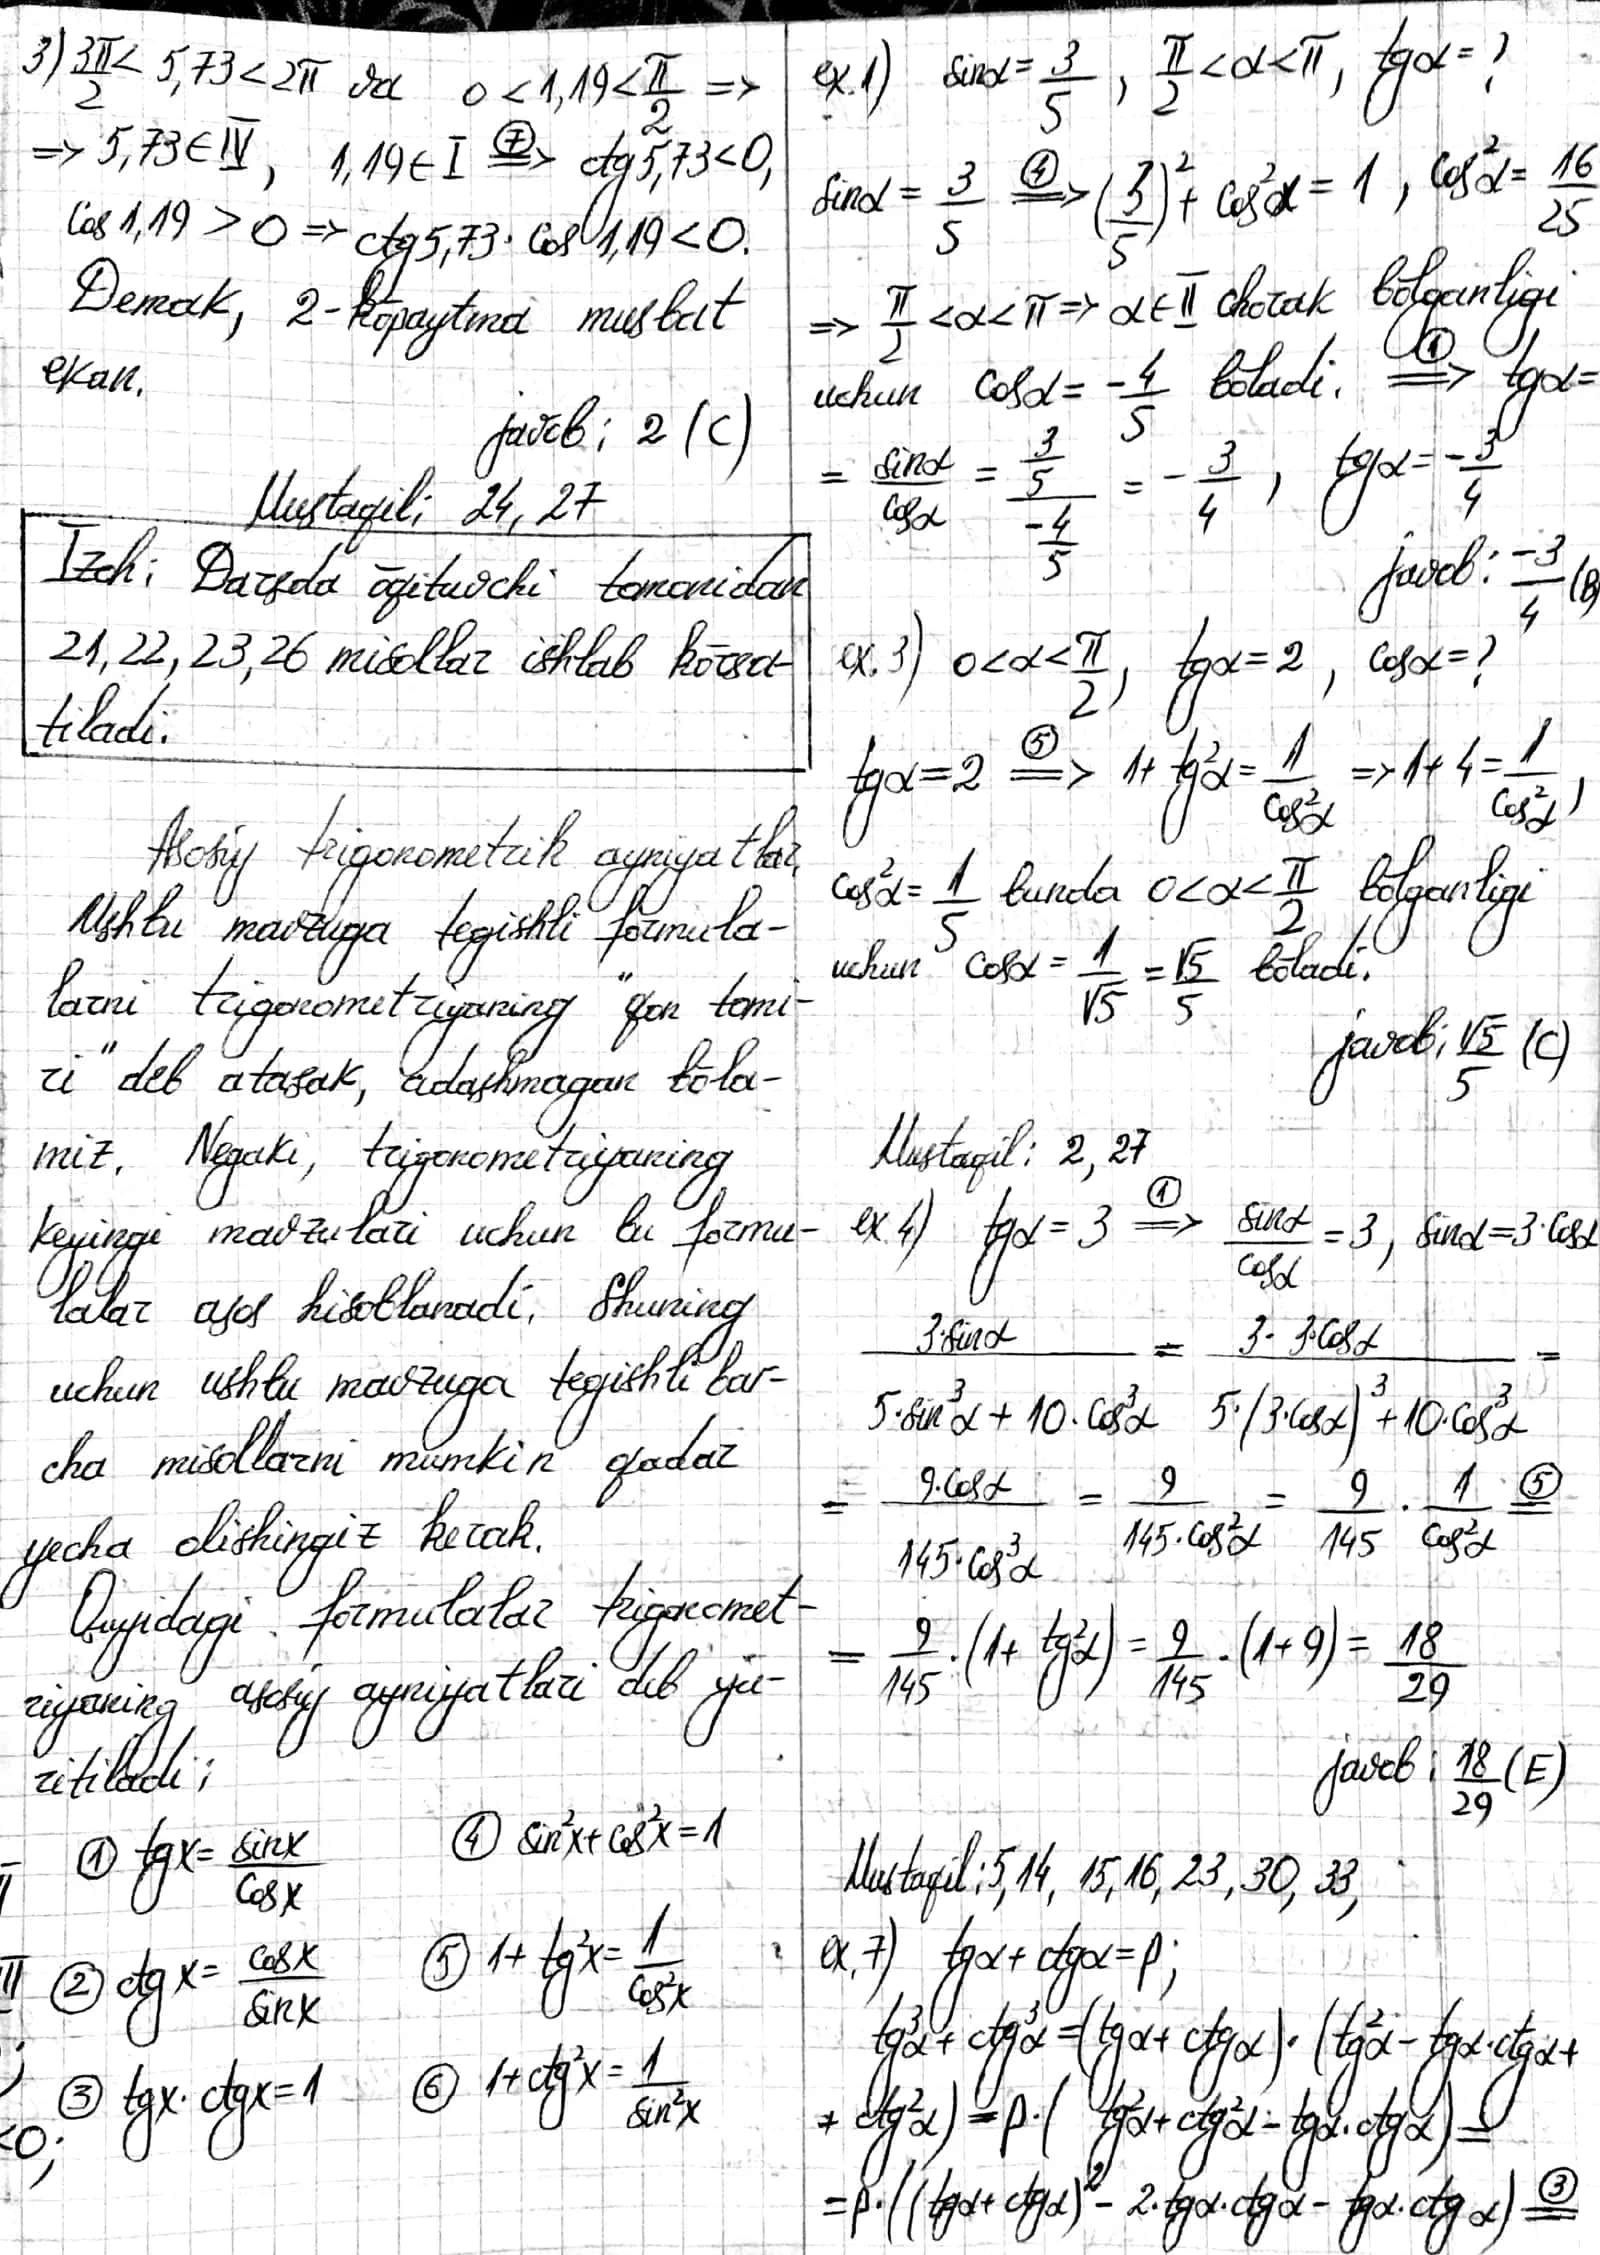 3) 3π/2 < 5,73 < 2π va 0 < 1,19 < π/2 =>
=> 5,73 ∈ IV, 1,19 ∈ I =⑦=> ctg5,73 < 0,
cos1,19 > 0 => ctg5,73 · cos1,19 < 0.
Demak, 2-kōpaytma musbat
ekan.
javob: 2 (C)
Mustaqil: 24, 27
Izoh: Darsda ōqituvchi tomonidan
21, 22, 23, 26 misollar ishlab kōrsa-
tiladi.
Asosiy trigonometrik ayniyatlar.
Ushbu mavzuga tegishli formula-
larni trigonometriyaning "qon tomi-
ri" deb atasak, adashmagan bōla-
miz. Negaki, trigonometriyaning
keyingi mavzulari uchun bu formu-
lalar asos hisoblanadi. Shuning
uchun ushbu mavzuga tegishli bar-
cha misollarni mumkin qadar
yecha olishingiz kerak.
Quyidagi formulalar trigonomet-
riyaning asosiy ayniyatlari deb yu-
ritiladi:
① tgx = sinx/cosx ④ sin²x + cos²x = 1
② ctgx = cosx/sinx ⑤ 1 + tg²x = 1/cos²x
③ tgx · ctgx = 1 ⑥ 1 + ctg²x = 1/sin²x
<0;
ex.1) sinα = 3/5, π/2 < α < π, tgα = ?
sinα = 3/5 =④=> (3/5)² + cos²α = 1, cos²α = 16/25
=> π/2 < α < π => α ∈ II chorak bōlganligi
uchun cosα = -4/5 bōladi. =①=> tgα =
= sinα/cosα = (3/5)/(-4/5) = -3/4, tgα = -3/4
javob: -3/4 (B)
ex.3) 0 < α < π/2, tgα = 2, cosα = ?
tgα = 2 =⑤=> 1 + tg²α = 1/cos²α => 1 + 4 = 1/cos²α,
cos²α = 1/5 bunda 0 < α < π/2 bōlganligi
uchun cosα = 1/√5 = √5/5 bōladi.
javob: √5/5 (C)
Mustaqil: 2, 27
ex.4) tgα = 3 =①=> sinα/cosα = 3, sinα = 3·cosα
3·sinα/(5·sin³α + 10·cos³α) = 3·3·cosα/(5·(3·cosα)³ + 10·cos³α) =
= 9·cosα/(145·cos³α) = 9/(145·cos²α) = 9/145 · 1/cos²α =⑤=
= 9/145 · (1 + tg²α) = 9/145 · (1+9) = 18/29
javob: 18/29 (E)
Mustaqil: 5, 14, 15, 16, 23, 30, 33,
ex.7) tgα + ctgα = p;
tg³α + ctg³α = (tgα + ctgα) · (tg²α - tgα·ctgα +
+ ctg²α) = p · (tg²α + ctg²α - tgα·ctgα) =
= p · ((tgα + ctgα)² - 2·tgα·ctgα - tgα·ctgα) =③=